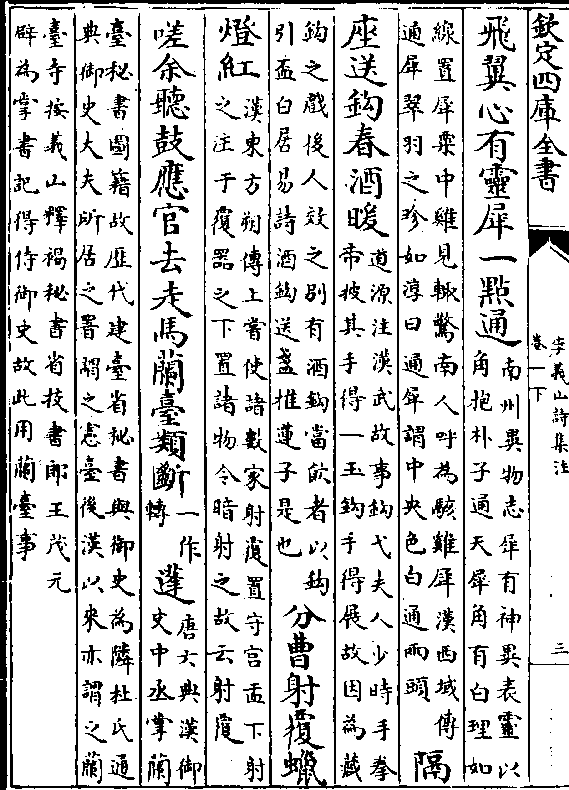 欽定四庫全書
李義山詩集注
卷一下
三
飛翼心有靈犀一點通
南州異物志犀有神異表靈以
角抱朴子通天犀角有白理如
線置犀粟中雞見輒驚南人呼為駭雞犀漢西域傳
通犀翠羽之珍如淳曰通犀謂中央色白通兩頭
隔
座送鈎春酒暖
道源注漢武故事鈎弋夫人少時手拳
帝披其手得一玉鈎手得展故因為藏
鈎之戲後人效之别有酒鈎當飲者以鈎
引盃白居易詩酒鈎送盞推蓮子是也
分曹射覆蠟
燈紅
漢東方朔傳上嘗使諸數家射覆置守宫盂下射
之注于覆器之下置諸物令暗射之故云射覆
嗟余聽鼓應官去走馬蘭臺類斷
一作
轉
蓬
唐六典漢御
史中丞掌蘭
臺秘書圖籍故歷代建臺省秘書與御史為隣杜氏通
典御史大夫所居之署謂之憲臺後漢以來亦謂之蘭
臺寺按義山釋褐秘書省校書郎王茂元
辟為掌書記得侍御史故此用蘭臺事